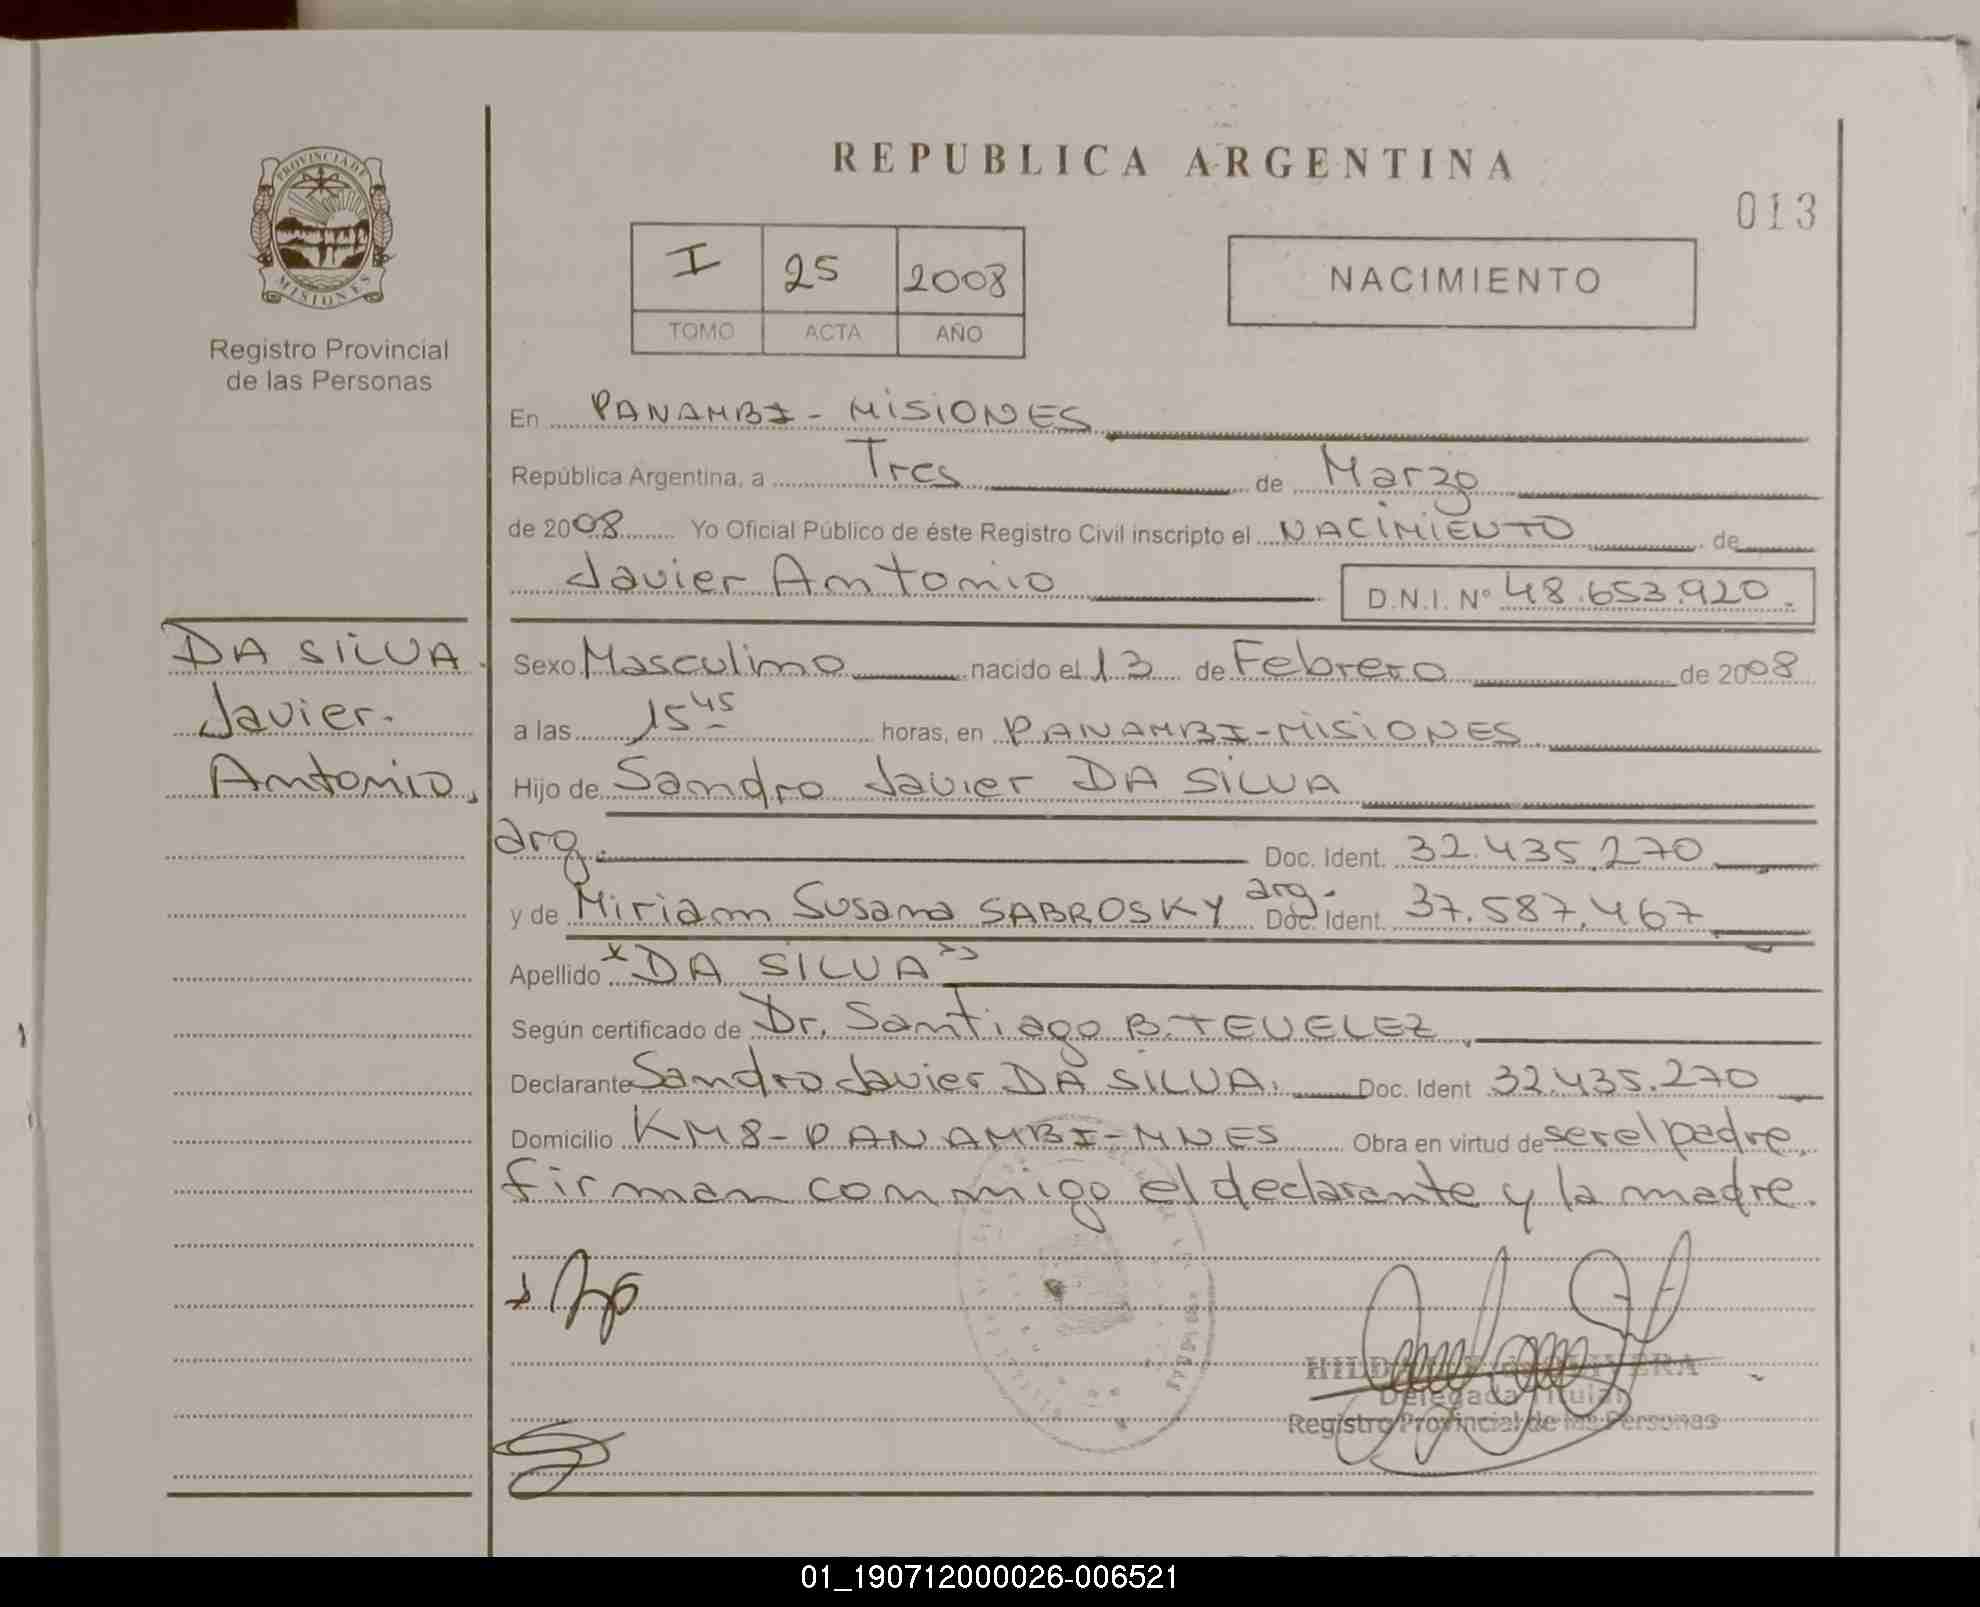 REPUBLICA ARGENTINA
013
PROVINCIA DE
MISIONES
Registro Provincial
de las Personas
I 25 2008
TOMO ACTA AÑO
NACIMIENTO
En PANAMBI - MISIONES
República Argentina, a Tres de Marzo
de 2008 Yo Oficial Público de éste Registro Civil inscripto el NACIMIENTO de
Javier Antonio D.N.I. Nº 48.653.920.
DA SILVA.
Javier.
Antonio.
Sexo Masculino nacido el 13 de Febrero de 2008
a las 15 45 horas, en PANAMBI-MISIONES
Hijo de Sandro Javier DA SILVA
arg. Doc. Ident. 32.435.270
y de Miriam Susana SABROSKY arg. Doc. Ident. 37.587.467
Apellido "DA SILVA"
Según certificado de Dr. Santiago B.
Declarante Sandro Javier DA SILVA. Doc. Ident 32.435.270
Domicilio KM8-PANAMBI-MNES Obra en virtud de ser el padre,
firman conmigo el declarante y la madre.
Delegada Titular
Registro Provincial de las Personas
01_190712000026-006521